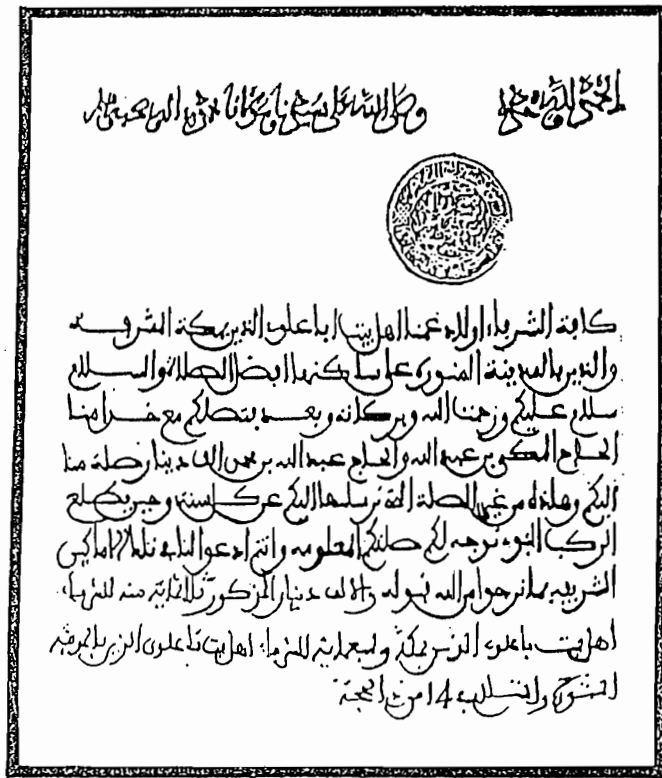 الحمد لله وحده وصلى الله على سيدنا ومولانا محمد
كافة الشرفاء اولاد عمنا اهل بيت ابا علوي الذين بمكة المشرفة
والذين بالمدينة المنورة على ساكنها افضل الصلاة والسلام
سلام عليكم ورحمت الله وبركاته وبعد يتصلكم مع خدامنا
الحاج عبد الله والحاج عبد الله الف دينار صلة منا
اليكم وهذه من غير الصلة التي نرسلها اليكم عن كل سنة وحين يطلع
الركب النبوي نوجه لكم صلتكم المعلومة وانتم ادعوا لنا
الشريف بما نرجوا من الله قبوله والالف دينار المذكور ثلاثماية منه للشرفاء
اهل بيت باعلوي الذين بمكة وسبعماية للشرفاء اهل بيت باعلوي الذين بالمدينة
المنورة والسلام 14 من ذي الحجة